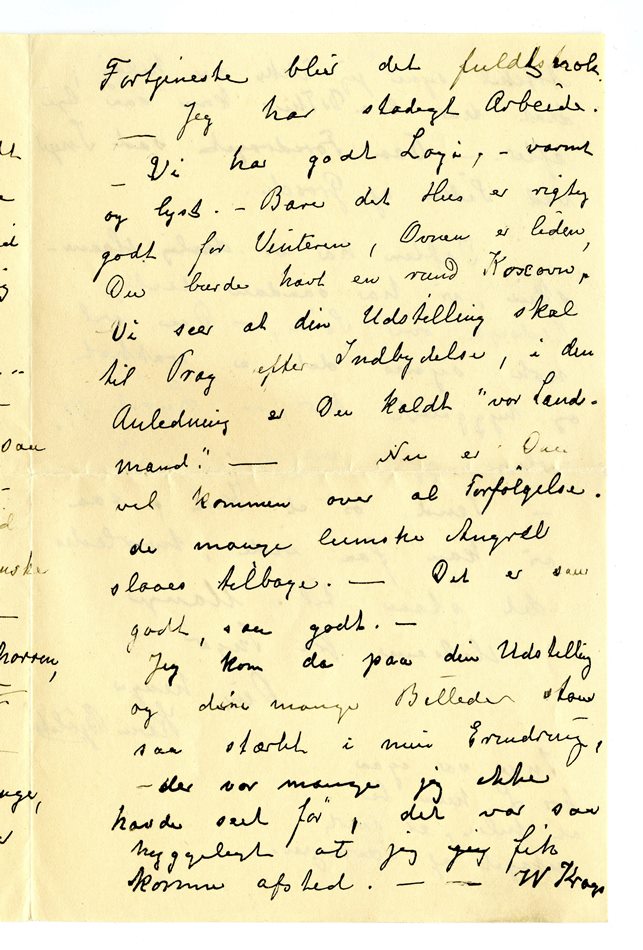 Fortjeneste blir det fuldt nok.
— Jeg har stadigt Arbeide.
— Vi har godt Logi, – varmt
og lyst. – Bare det Hus er rigtig
godt for Vinteren, Ovnen er liden,
Du burde havt en rund Koxovn,
Vi seer at din Udstilling skal
til Prag efter Indbydelse, i den
Anledning er Du kaldt "vor Lands-
mand". — Nu er Du
vel kommen over al Forfölgelse.
de mange lumske Angreb
slaaes tilbage. — Det er saa
godt, saa godt. –
Jeg kom da paa din Udstilling
og dine mange Billeder staar
saa stærkt i min Erindring,
– der var mange jeg ikke
havde seet för, det var saa
hyggeligt at jeg fik
komme afsted. — —
saa
uske
harren,